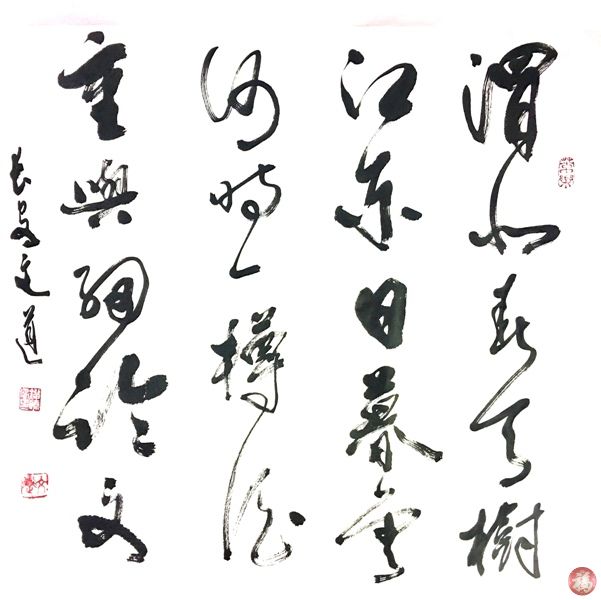 渭北春天樹
江东日暮雲
何時一樽酒
重與細論文
长安文道
福